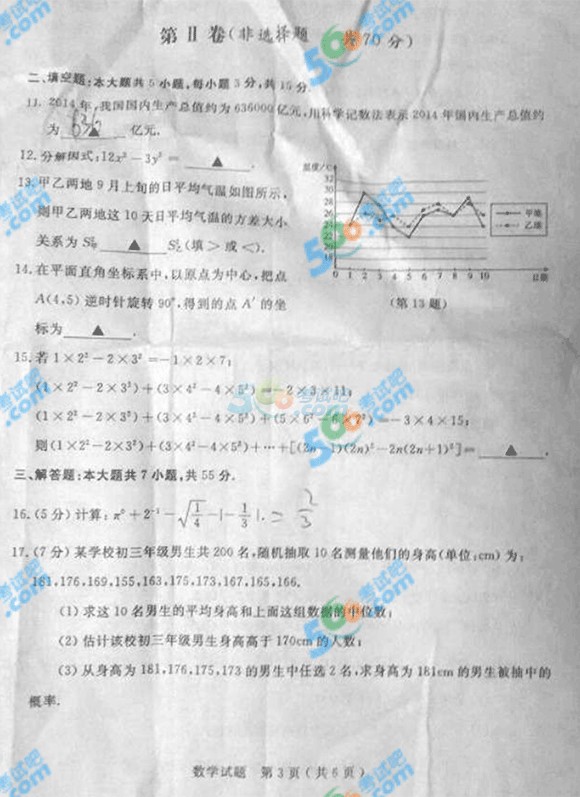 第Ⅱ卷(非选择题 共70分)
二、填空题:本大题共5小题,每小题3分,共15分.
11. 2014年,我国国内生产总值约为636000亿元,用科学记数法表示2014年国内生产总值约
为 ▲ 亿元.
12. 分解因式:12x²-3y²= ▲ .
13. 甲乙两地9月上旬的日平均气温如图所示,
则甲乙两地这10天日平均气温的方差大小
关系为S²甲 ▲ S²乙(填>或<).
温度/℃
32
30
28
26
24
22
20
18
0 1 2 3 4 5 6 7 8 9 10 日期
甲地
乙地
(第13题)
14. 在平面直角坐标系中,以原点为中心,把点
A(4,5)逆时针旋转90°,得到的点A′的坐
标为 ▲ .
15. 若1×2²-2×3²=-1×2×7;
(1×2²-2×3²)+(3×4²-4×5²)=-2×3×11;
(1×2²-2×3²)+(3×4²-4×5²)+(5×6²-6×7²)=-3×4×15;
则(1×2²-2×3²)+(3×4²-4×5²)+…+[(2n-1)(2n)²-2n(2n+1)²]= ▲ .
三、解答题:本大题共7小题,共55分.
16. (5分)计算:π⁰+2⁻¹-√(1/4)-|-1/3|. = 2/3
17. (7分)某学校初三年级男生共200名,随机抽取10名测量他们的身高(单位:cm)为:
181,176,169,155,163,175,173,167,165,166.
(1)求这10名男生的平均身高和上面这组数据的中位数;
(2)估计该校初三年级男生身高高于170cm的人数;
(3)从身高为181,176,175,173的男生中任选2名,求身高为181cm的男生被抽中的
概率.
数学试题 第3页(共6页)
考试吧
560.com